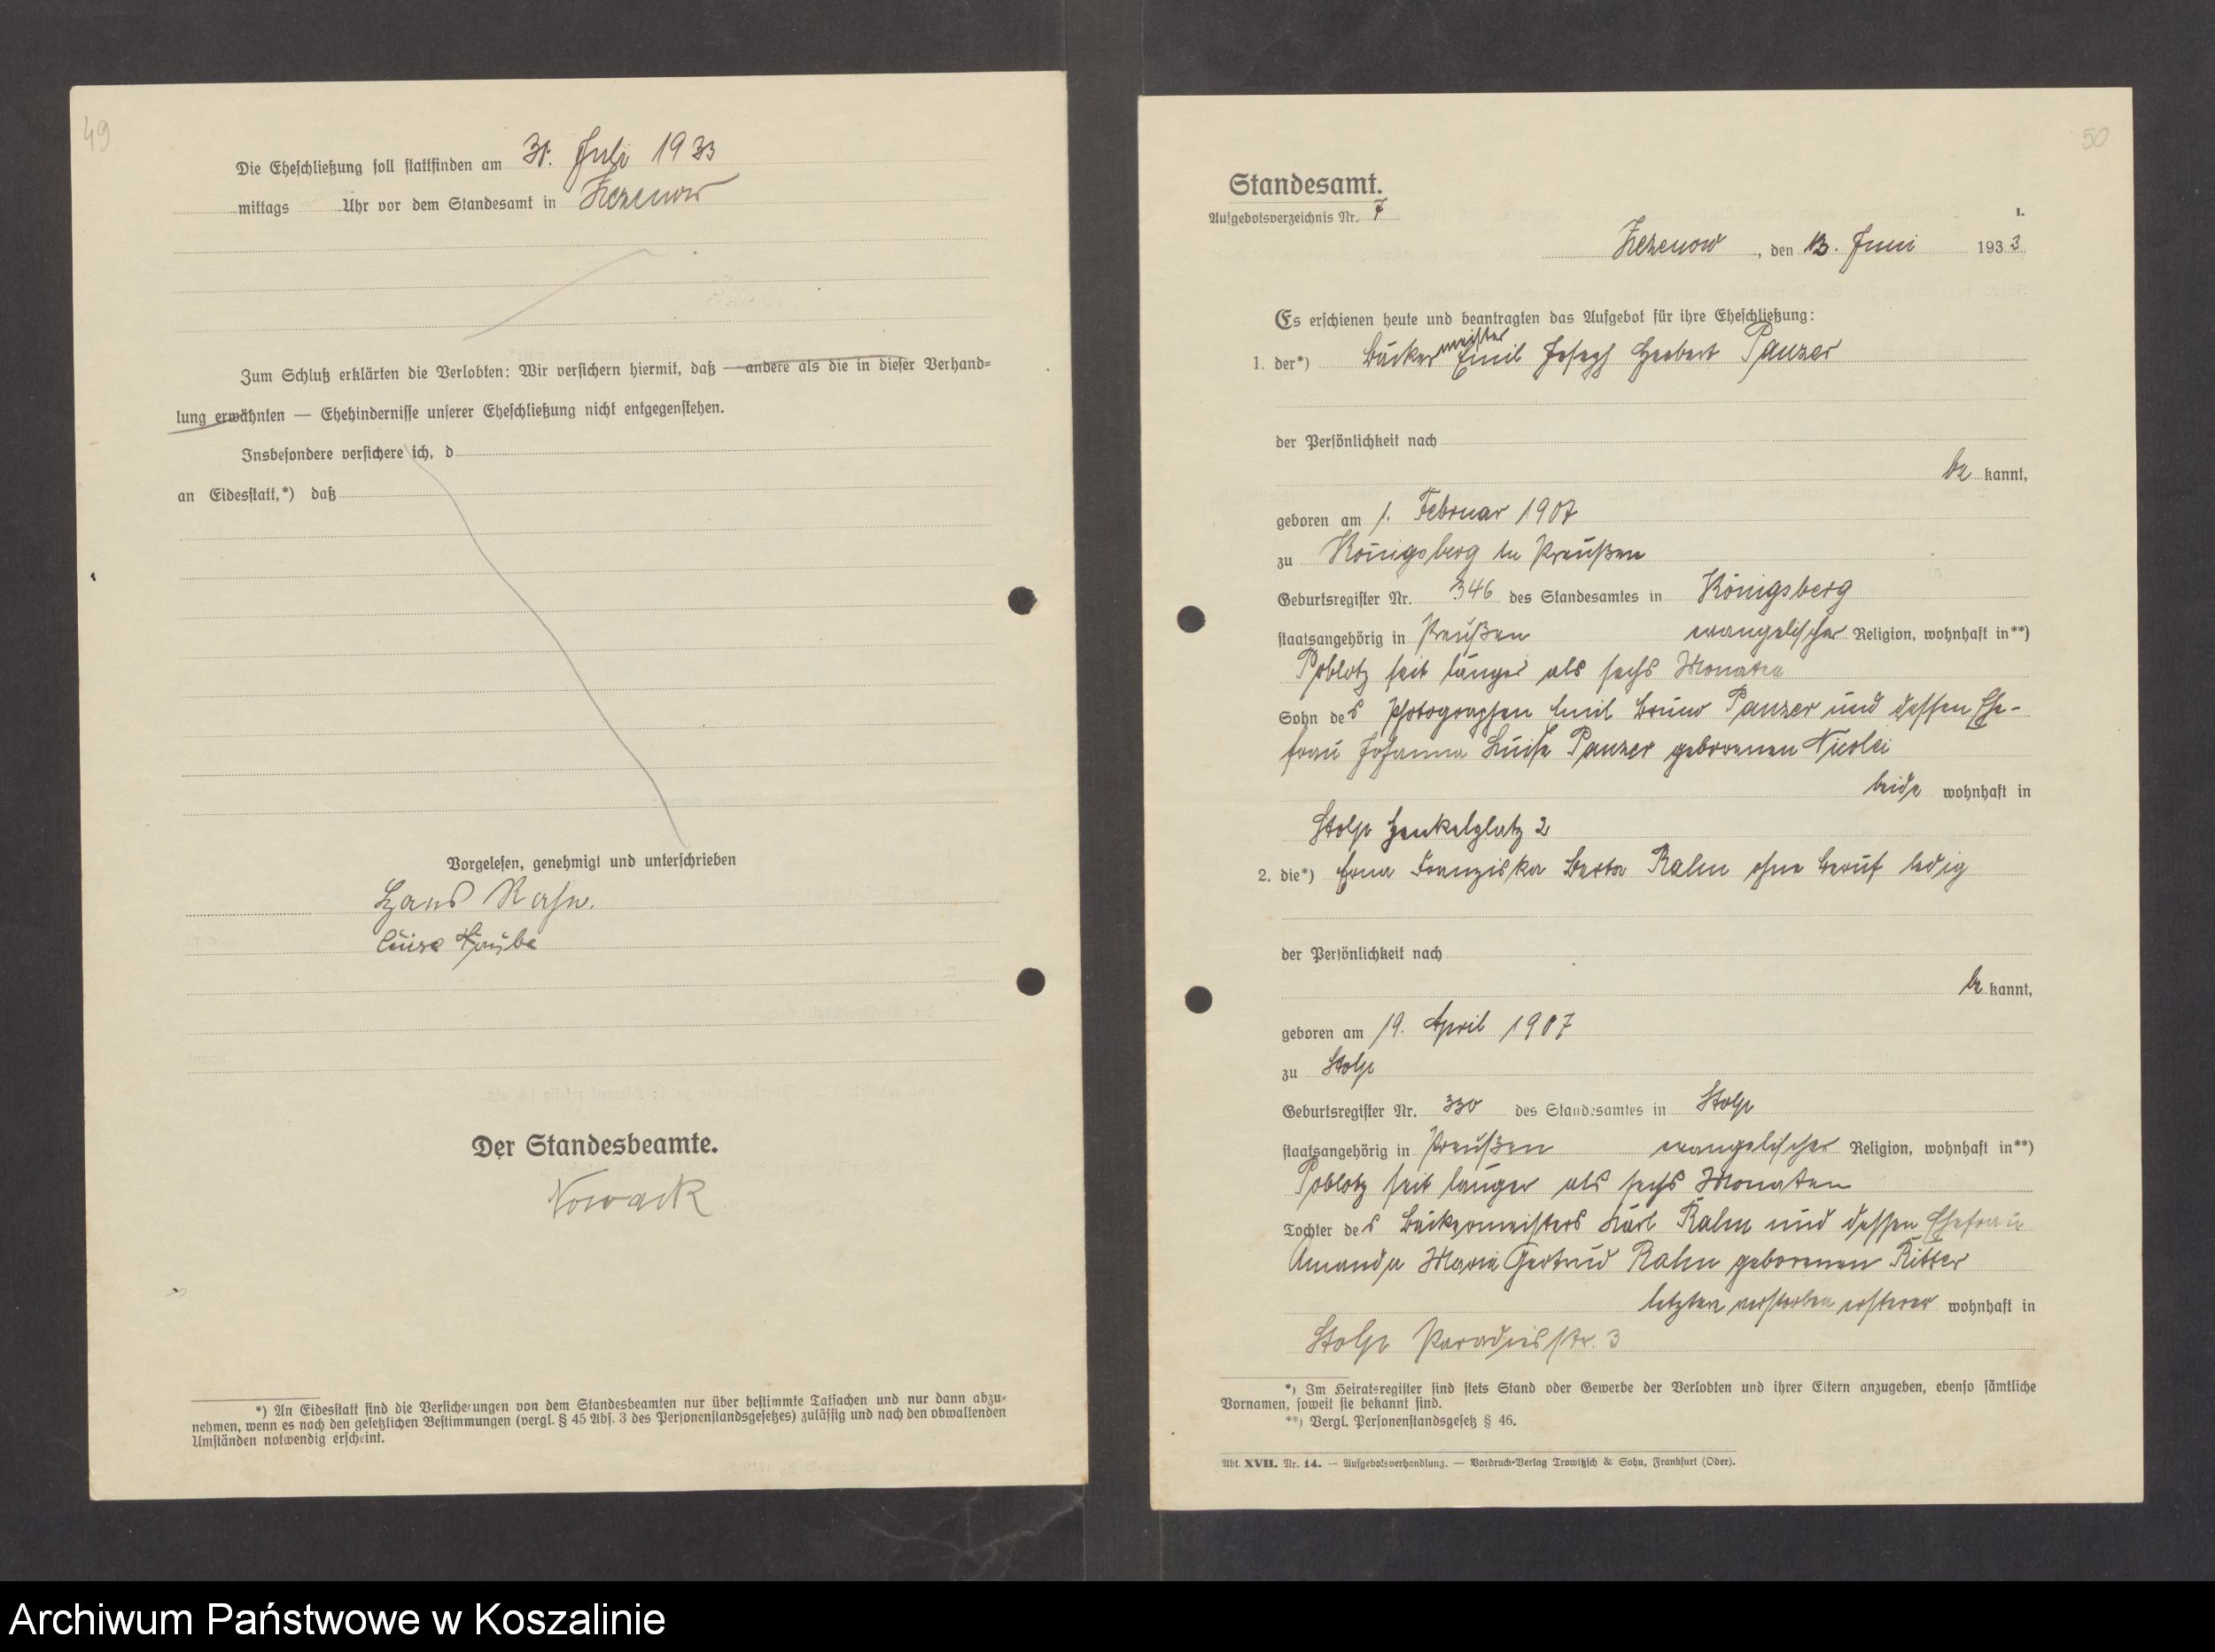 49
Die Eheschließung soll stattfinden am 31. Juli 1933
mittags Uhr vor dem Standesamt in Zezenow
Zum Schluß erklärten die Verlobten: Wir versichern hiermit, daß — andere als die in dieser Verhand=
lung erwähnten — Ehehindernisse unserer Eheschließung nicht entgegenstehen.
Insbesondere versichere ich, d
an Eidesstatt,*) daß
Vorgelesen, genehmigt und unterschrieben
Hans Rahn.
Luise
Der Standesbeamte.
Nowack
*) An Eidesstatt sind die Versicherungen von dem Standesbeamten nur über bestimmte Tatsachen und nur dann abzu=
nehmen, wenn es nach den gesetzlichen Bestimmungen (vergl. § 45 Abs. 3 des Personenstandsgesetzes) zulässig und nach den obwaltenden
Umständen notwendig erscheint.
50
Standesamt.
Aufgebotsverzeichnis Nr. 7
I.
Zezenow, den 13. Juni 1933
Es erschienen heute und beantragten das Aufgebot für ihre Eheschließung:
1. der*) Bäckermeister Emil Joseph Herbert Panzer
der Persönlichkeit nach
be kannt,
geboren am 1. Februar 1907
zu Königsberg in Preußen
Geburtsregister Nr. 346 des Standesamtes in Königsberg
staatsangehörig in Preußen evangelischer Religion, wohnhaft in**)
Poblotz seit länger als sechs Monaten
Sohn des Photographen Emil Bruno Panzer und dessen Ehe-
frau Johanna Luise Panzer geborenen Nicolai
beide wohnhaft in
Stolp Henkelplatz 2
2. die*) Erna Franziska Berta Rahn ohne Beruf ledig
der Persönlichkeit nach
be kannt,
geboren am 19. April 1907
zu Stolp
Geburtsregister Nr. 330 des Standesamtes in Stolp
staatsangehörig in Preußen evangelischer Religion, wohnhaft in**)
Poblotz seit länger als sechs Monaten
Tochter des Bäckermeisters Karl Rahn und dessen Ehefrau
Amanda Maria Gertrud Rahn geborenen Ritter
letztere verstorben ersterer wohnhaft in
Stolp Paradiesstr. 3
*) Im Heiratsregister sind stets Stand oder Gewerbe der Verlobten und ihrer Eltern anzugeben, ebenso sämtliche
Vornamen, soweit sie bekannt sind.
**) Vergl. Personenstandsgesetz § 46.
Abt. XVII. Nr. 14. — Aufgebotsverhandlung. — Vordruck-Verlag Trowitzsch & Sohn, Frankfurt (Oder).
Archiwum Państwowe w Koszalinie